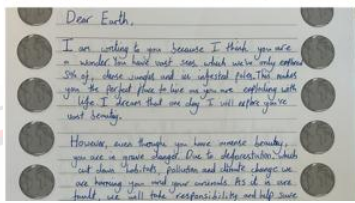 Dear Earth,
I am writing to you because I think you are
a wonder. You have vast seas which we've only explored
5% of, dense jungles and ice infested poles. This makes
you the perfect place to live as you are exploding with
life. I dream that one day I will explore you're
vast beauty.
However, even through you have immense beauty,
you are in grave danger. Due to deforestation, which
cut down habitats, pollution and climate change we
are harming you and your animals. As it is our
fault, we will take responsibility and help save